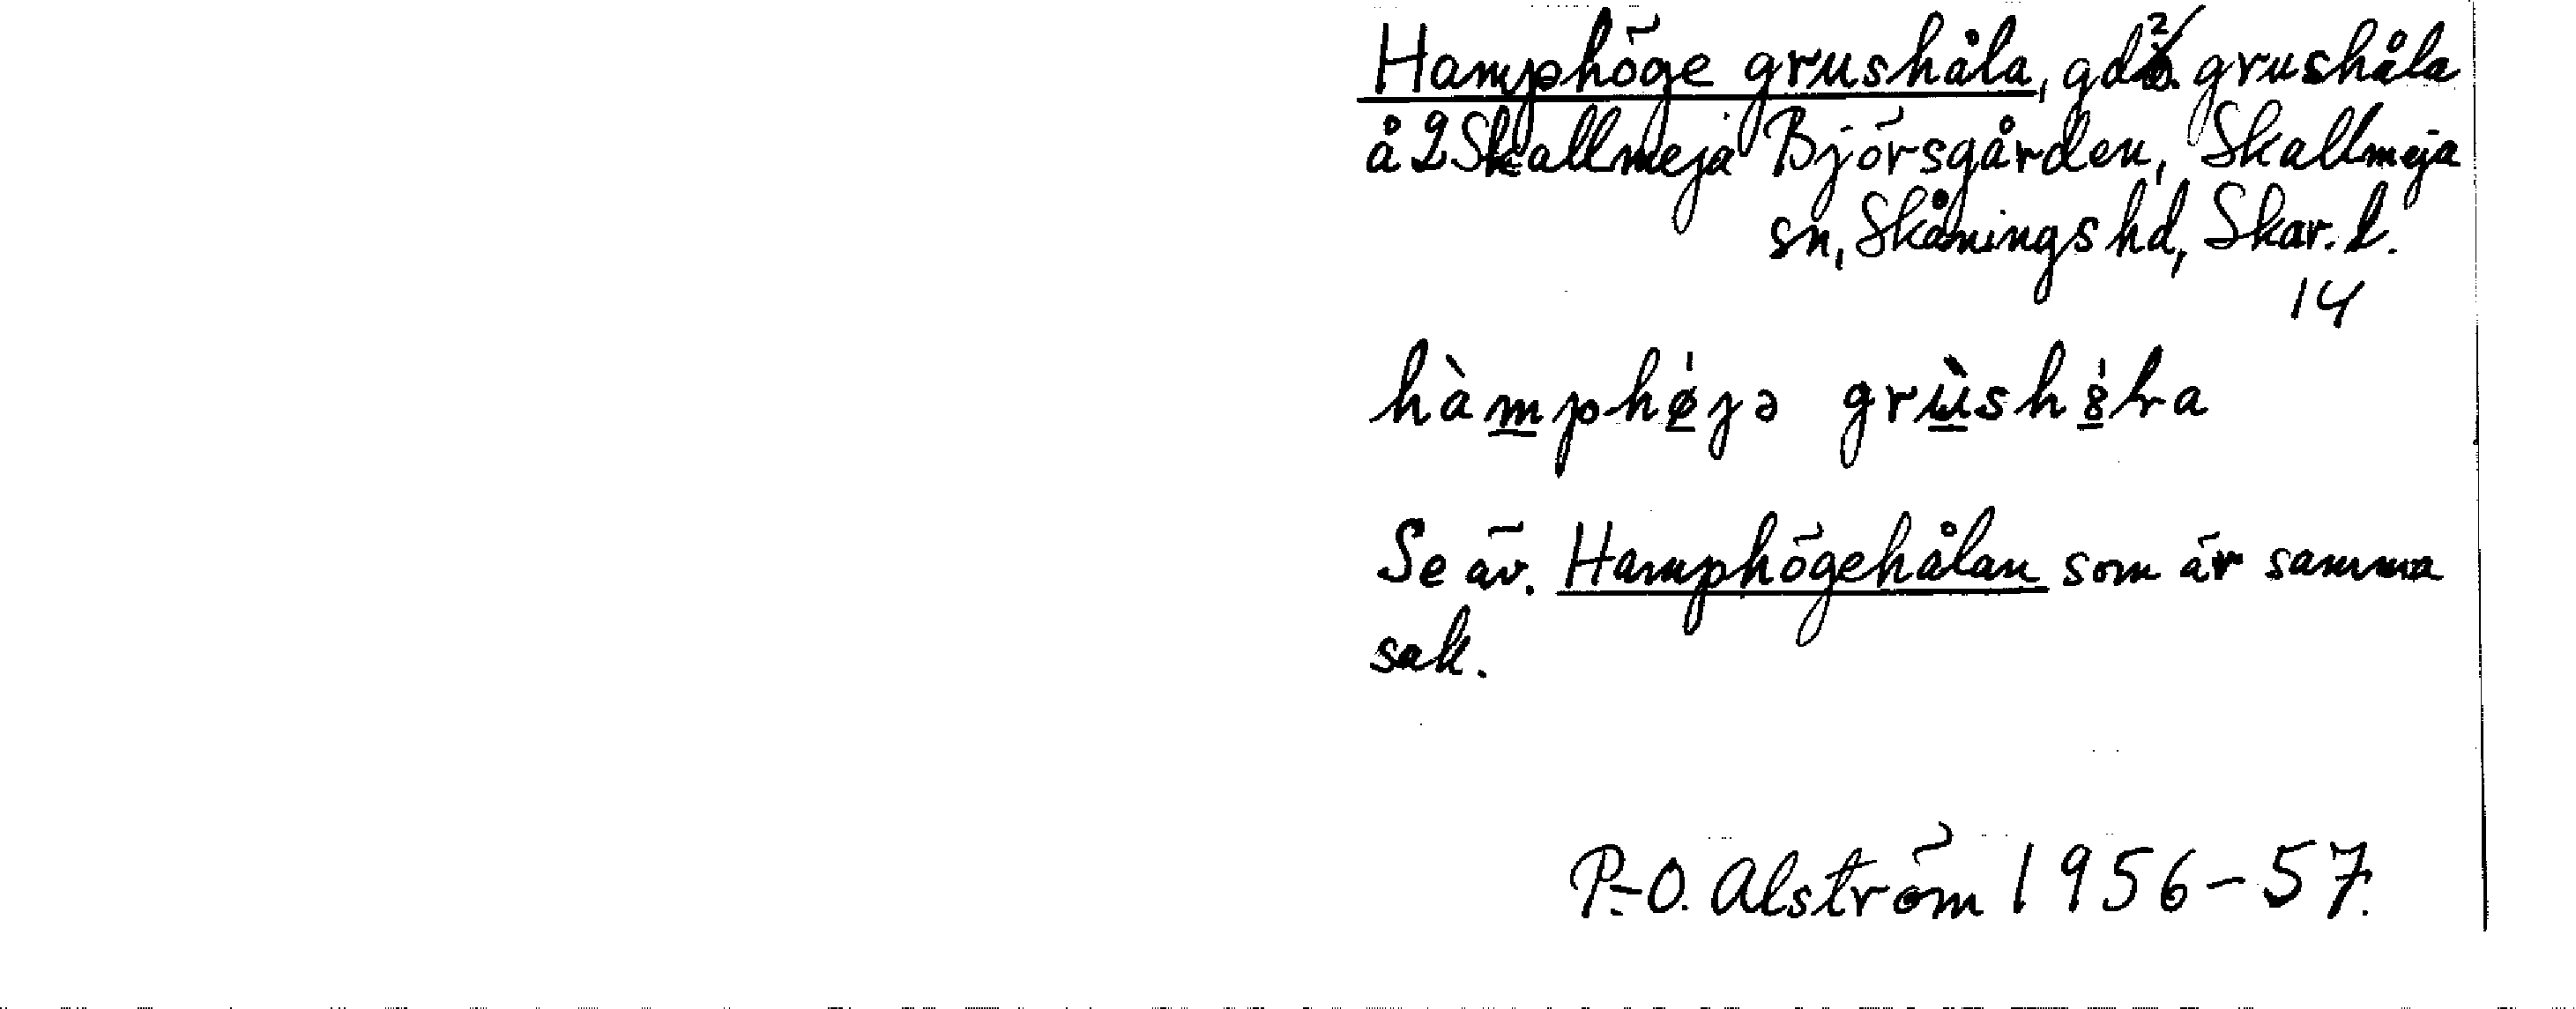 Hamphöge grushåla, gd2. grushåla
å 2 Skallmeja Björsgården, Skallmeja
sn, Skånings hd, Skar. l.
14
hàmphø̀jə grùshȯ̀lra
Se äv. Hamphögehålan som är samma
sak.
P.-O. Alström 1956-57.